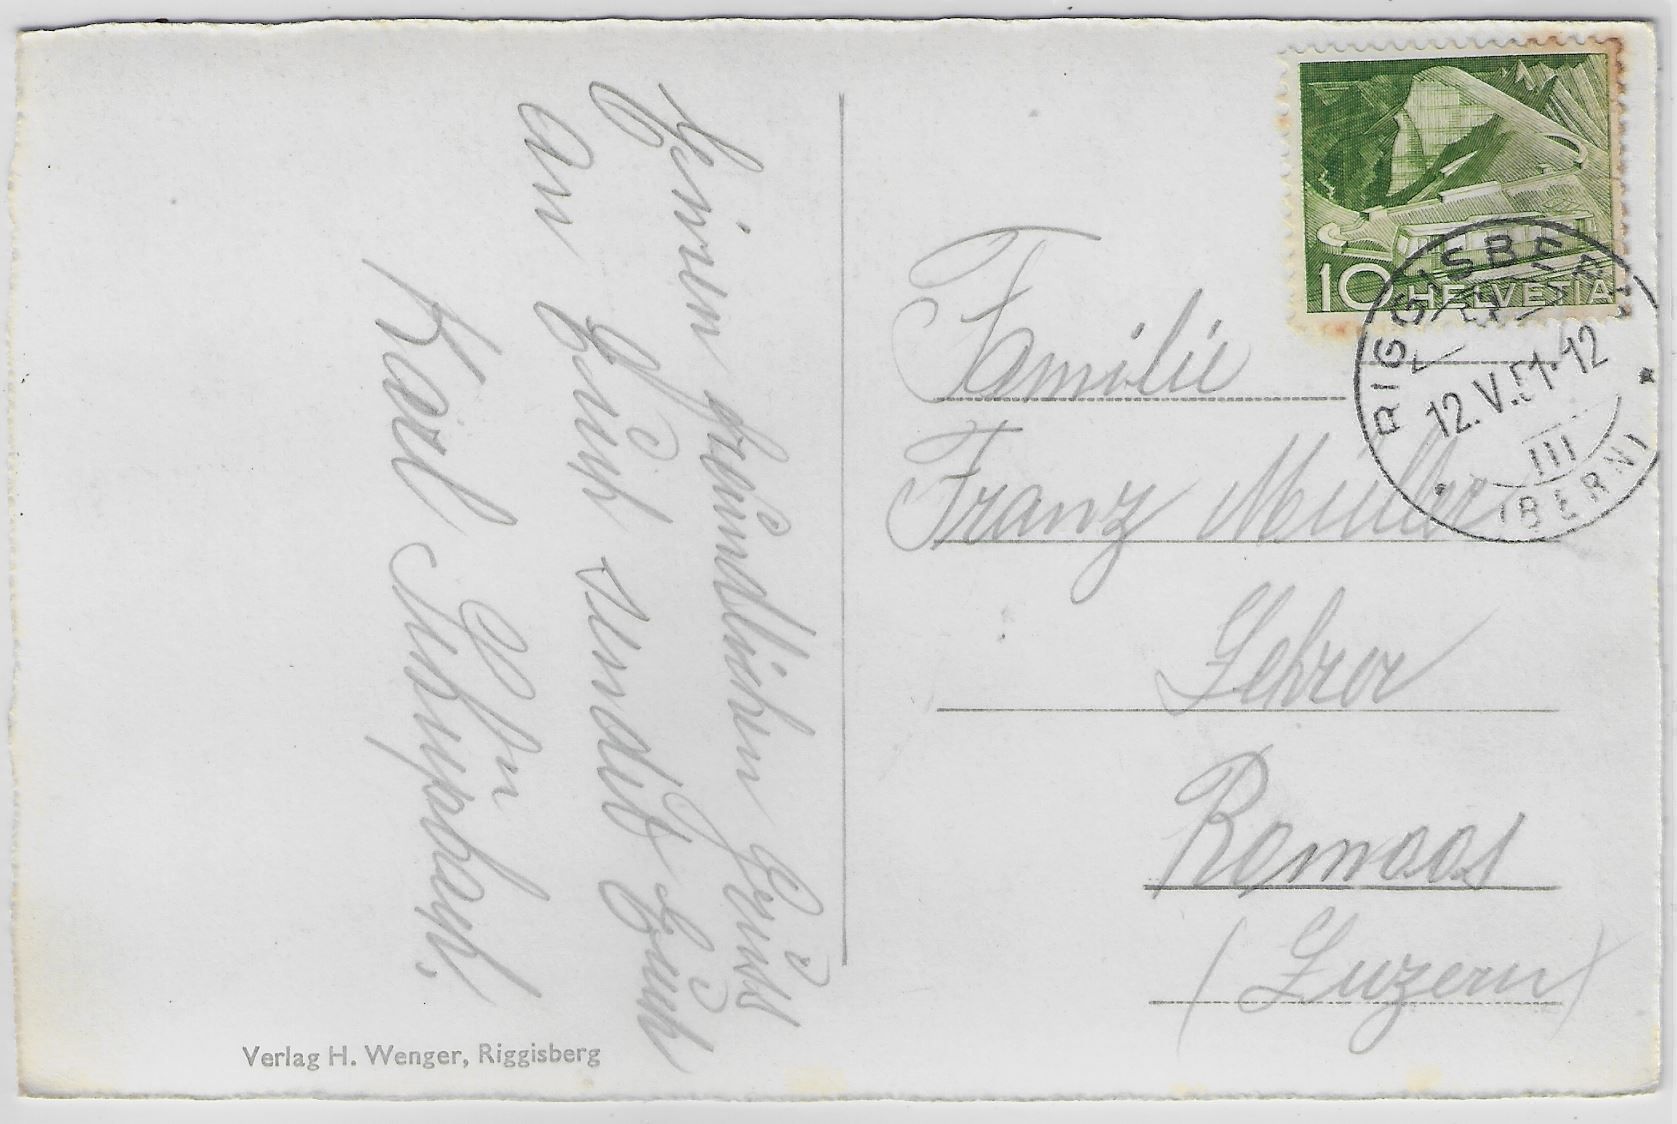 Einen freundlichen Gruss
an Euch sendet Euch
Karl
Familie
Franz Müller
Lehrer
Romoos
(Luzern)
10 HELVETIA
RIGGISBERG
12.V.51-12
III
(BERN)
Verlag H. Wenger, Riggisberg